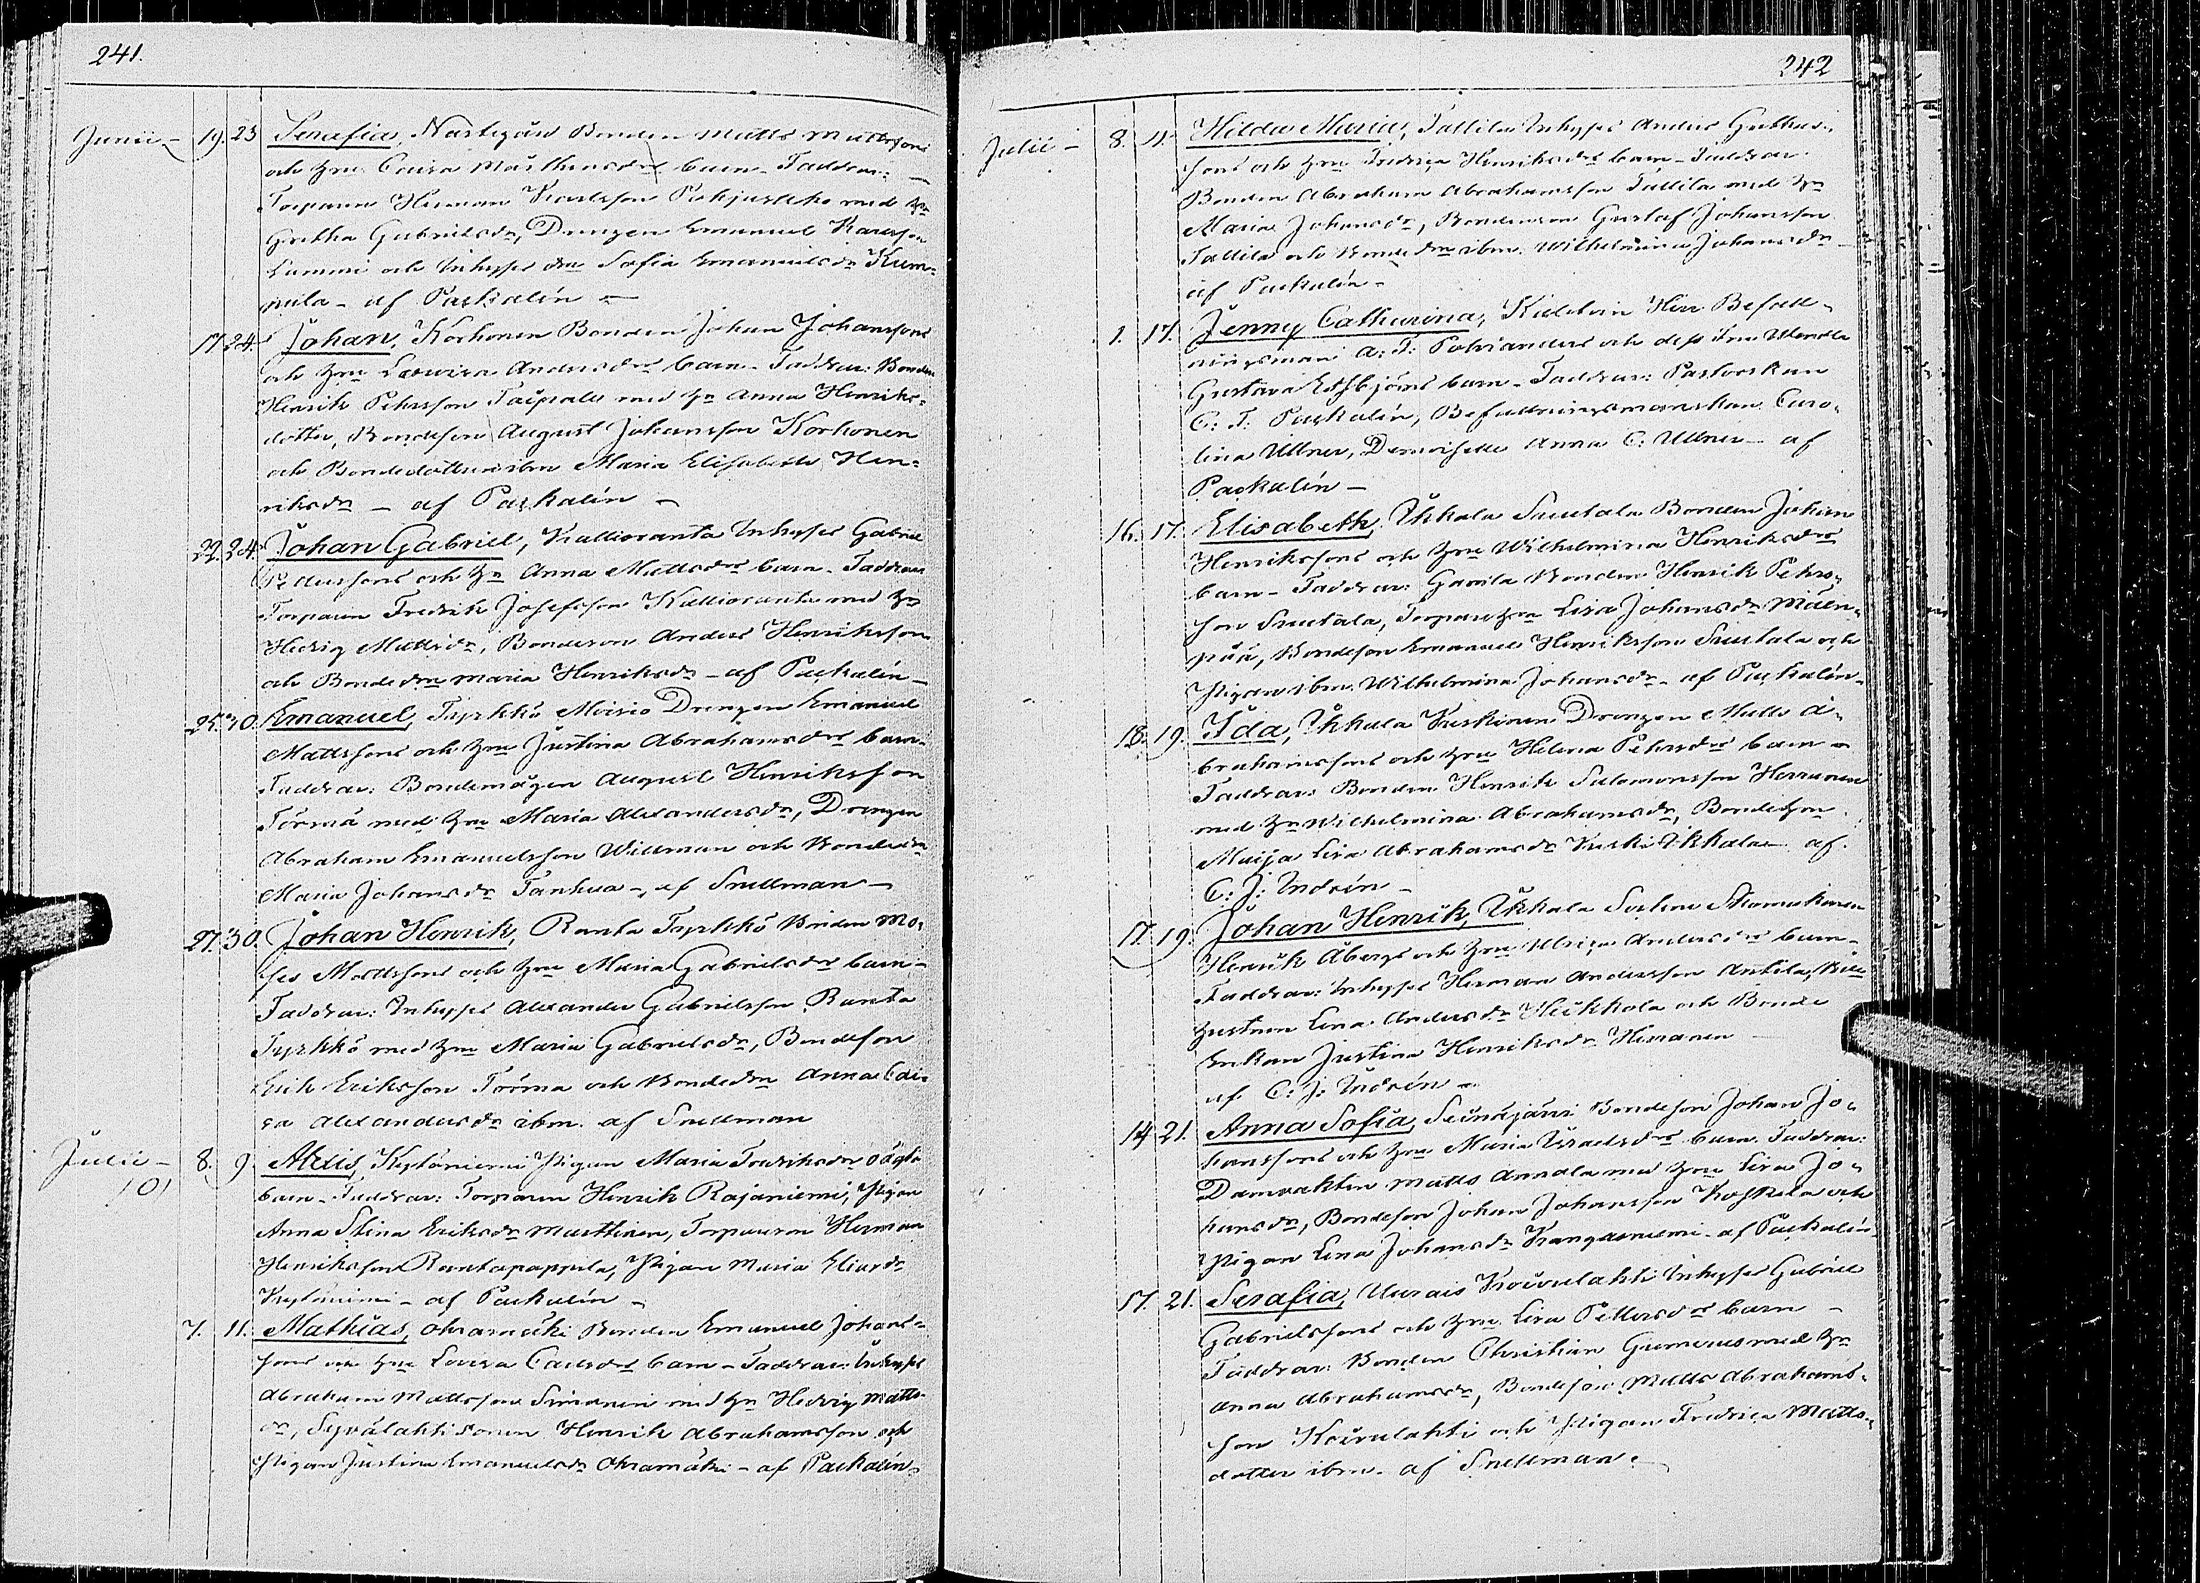 241.
Junii - 19. 23 Serafia, Bonden Matts Mattssons
och hru Caisa barn - Faddrar:
Torparen Herman Karlsson med hu
Gretha Gabrielsdr, Drengen Emanuel Karlsson
Lummi och Inhyses dru Sofia Emanuelsdr Kum-
pula - af Paskalin -
17. 24. Johan, Korhonen Bonden Johan Johanssons
och hru Lovisa Andersdrs barn - Faddrar: Bonden
Henrik Pehrsson Taipale med hu Anna Henriks-
dotter, Bondeson August Johansson Korhonen
och Bondedottren ibm Maria Elisabeth Hen-
riksdr - af Paskalin -
22. 24. Johan Gabriel, Kallioranta Inhyses Gabriel
Pederssons och hu Anna Mattsdrs barn - Faddrar
Torparen Fredrik Josefsson Kallioranta med hu
Hedvig Mattsdr, Bondeson Anders Henriksson
och Bondedru Maria Henriksdr - af Paskalin -
25. 30. Emanuel, Tyrkkö Moisio Drengen Emanuel
Mattssons och hru Justina Abrahamsdrs barn -
Faddrar: Bondemågen August Henriksson
Törmä med hru Maria Alexandersdr, Drengen
Abraham Emanuelsson Willman och Bondedru
Maria Johansdr Tanhua - af Snellman -
27. 30. Johan Henrik, Ranta Tyrkkö Bonden Mo-
ses Mattssons och hru Maria Gabrielsdrs barn -
Faddrar: Inhyses Alexander Gabrielsson Ranta
Tyrkkö med hru Maria Gabrielsdr, Bondeson
Erik Eriksson Törmä och Bondedru Anna Cai-
sa Alexandersdr ibm. af Snellman
Julii - 8. 9. Alexis, Kyläniemi Pigan Maria Fredriksdrs oägta
101
barn - Faddrar: Torparen Henrik Rajaniemi, Pigan
Anna Stina Eriksdr Marttinen, Torpareson Herman
Henriksson Rantapappila, Pigan Maria Eliasdr
Kyläniemi - af Paskalin -
7. 11. Mathias, Ohramäki Bonden Emanuel Johans-
sons och hru Lovisa Carlsdrs barn - Faddrar: Inhyses
Abraham Mattsson Simonen med hu Hedvig Matts-
dr, Syvälahti sonen Henrik Abrahamsson och
Pigan Justina Emanuelsdr Ohramäki - af Paskalin -
242
Julii - 8. 11. Hilda Maria, Tallila Inhyses Anders
sons och hru Fredrica Henriksdrs barn - Faddrar
Bonden Abraham Abrahamsson Tallila med hu
Maria Johansdr, Bondeson Gustaf Johansson
Tallila och Bondedru ibm. Wilhelmina Johansdr
af Paskalin -
1. 17. Jenny Catharina, Herr Befall-
ningsman A: F: och dess fru Wendla
Gustava barn - Faddrar: Pastorskan
C: F: Paskalin, Befallningsmanskan Caro-
lina Ullner, Demoiselle Anna C: Ullner - af
Paskalin -
16. 17. Elisabeth, Ukkala Suutala Bonden Johan
Henrikssons och hru Wilhelmina Henriksdrs
barn - Faddrar: Gamla Bonden Henrik Pehrs-
son Suutala, Torparehru Lisa Johansdr Mäen-
pää, Bondeson Emanuel Henriksson Suutala och
Pigan ibm. Wilhelmina Johansdr - af Paskalin -
18. 19. Ida, Ukkala Kuskinen Drengen Matts A-
brahamssons och hru Helena Pehrsdrs barn -
Faddrar: Bonden Henrik Salomonsson Herranen
med hu Wilhelmina Abrahamsdr, Bondehru
Maija Lisa Abrahamsdr Kuski Ukkala - af
C: J: Indrén -
17. 19. Johan Henrik, Ukkala Skomakaren
Henrik Åbergs och hru Ulrica Andersdrs barn -
Faddrar: Inhyses Herman Andersson Anttila,
hustrun Lena Andersdr Heikkola och Bonde
Enkan Justina Henriksdr Himanen
af C: J: Indrén -
14. 21. Anna Sofia, Seinäjärvi Bondeson Johan Jo-
hanssons och hru Maria Israelsdrs barn. Faddrar:
Damvakten Matts Annala med hru Lisa Jo-
hansdr, Bondeson Johan Johansson Koskela och
Pigan Lena Johansdr Kangasniemi - af Paskalin
17. 21. Serafia, Uurais Koivulahti Inhyses Gabriel
Gabrielssons och hru Lisa Pettersdrs barn -
Faddrar: Bonden Christian Gummerus med hu
Anna Abrahamsdr, Bondeson Matts Abrahams-
son Koivulahti och Pigan Fredrica Matts-
dotter ibm. af Snellman.